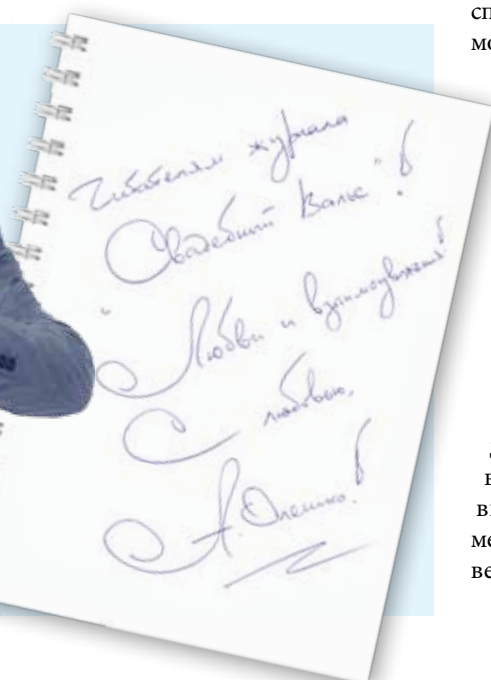 Читателям журнала
"Свадебный Вальс"!
Любви и взаимоуважения!
С любовью,
А. Олешко!
сп
мо
в
ме
ве